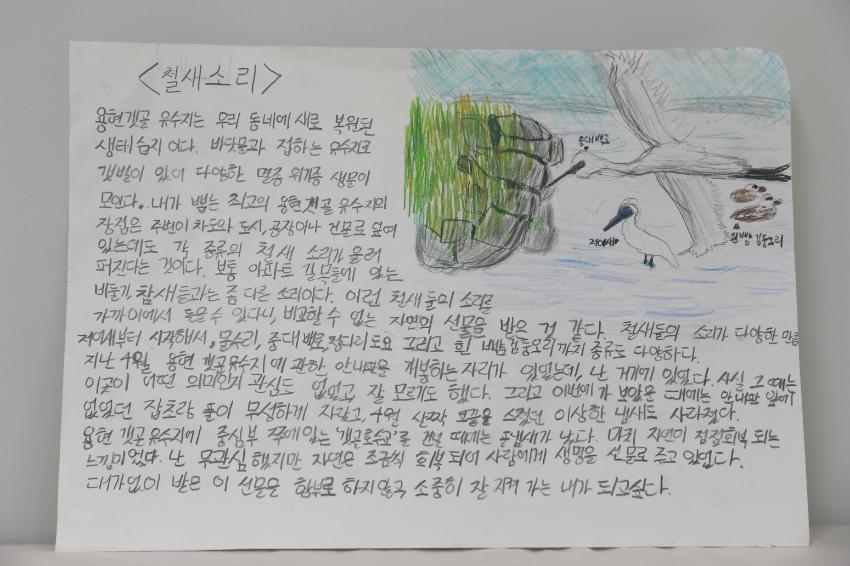 <철새소리>
용현갯골 유수지는 우리 동네에 새로 복원된
생태습지 이다. 바닷물과 접하는 유수지로
갯벌이 있어 다양한 멸종 위기종 생물이
모인다. 내가 뽑는 최고의 용현갯골 유수지의
장점은 주변이 차도와 도시, 공장이나 건물로 덮여
있는데도 각 종류의 철새 소리가 울려
퍼진다는 것이다. 보통 아파트 길목들에 있는
비둘기, 참새들과는 좀 다른 소리이다. 이런 철새들의 소리를
가까이에서 들을 수 있다니, 비교할 수 없는 자연의 선물을 받은 것 같다. 철새들의 소리가 다양한 만큼
저어새부터 시작해서, 물수리, 중대백로, 청다리도요 그리고 흰뺨검둥오리까지 종류도 다양하다.
지난 4월 용현 갯골유수지에 관한 안내판을 개봉하는 자리가 있었는데, 난 거기에 있었다. 사실 그 때는
이곳이 어떤 의미인지 관심도 없었고, 잘 모르기도 했다. 그리고 이번에 가 보았을 때에는 안내판 앞에
없었던 잡초랑 풀이 무성하게 자랐고, 4월 살짝 코끝을 스쳤던 이상한 냄새도 사라졌다.
용현 갯골유수지에 중심부 쪽에 있는 '갯골로교'를 건널 때에는 풀냄새가 났다. 마치 자연이 점점 회복 되는
느낌이었다. 난 무관심 했지만 자연은 조금씩 회복 되어 사람에게 생명을 선물로 주고 있었다.
대가없이 받은 이 선물을 함부로 하지 않고 소중히 잘 지켜 가는 내가 되고싶다.
중대백로
저어새
흰뺨검둥오리